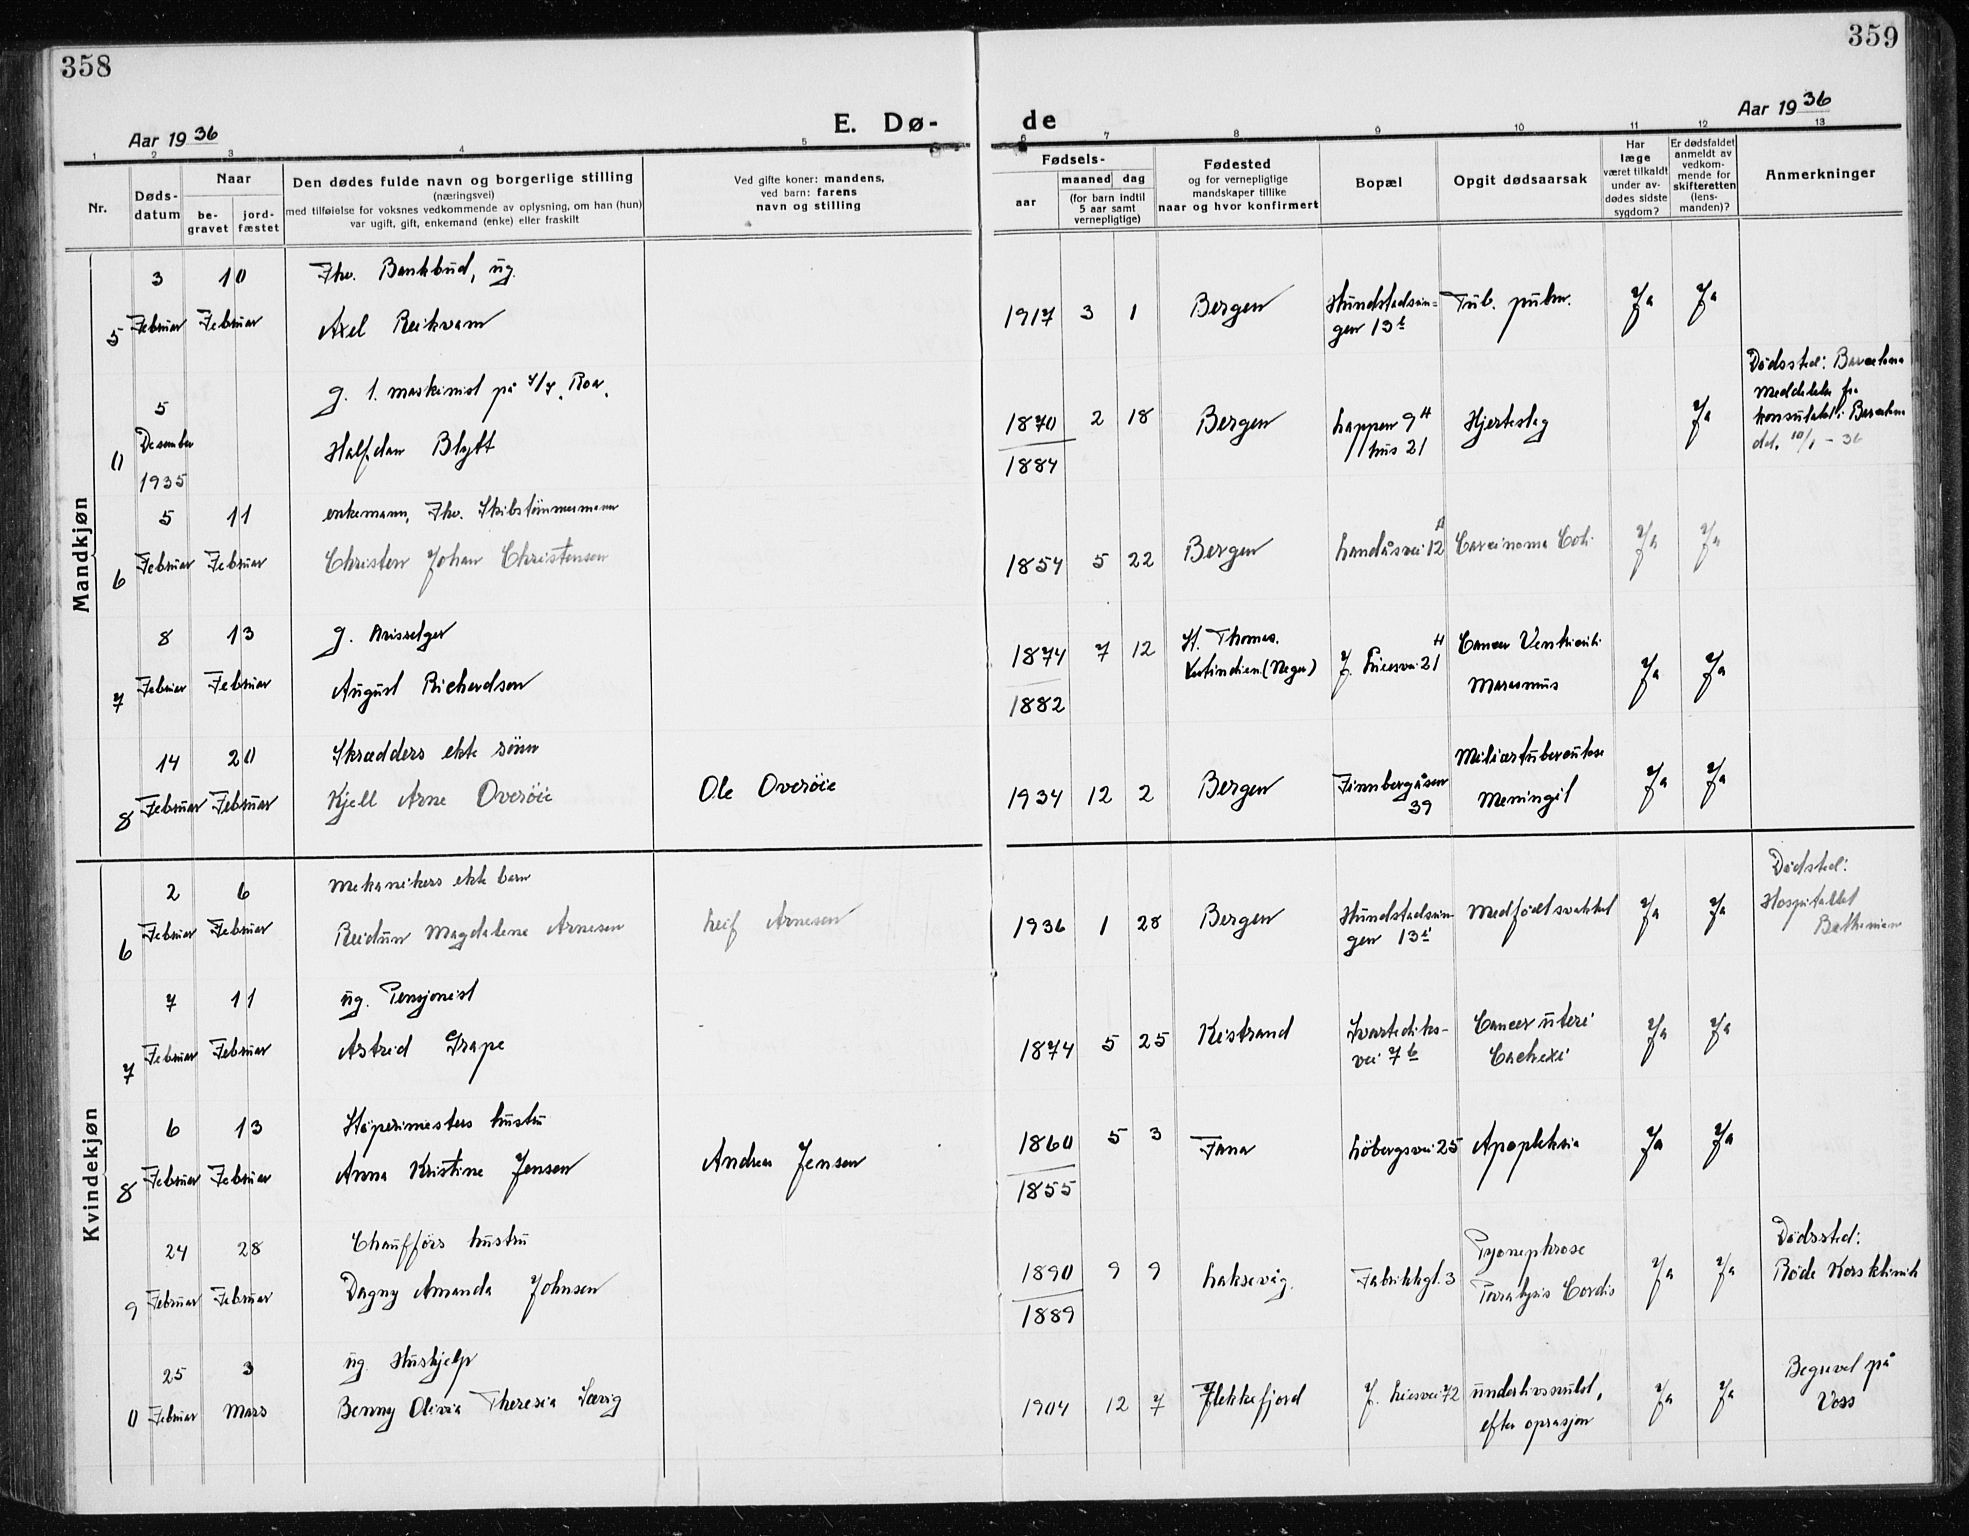 358
359
Aar 1936
E. Dø-
de
Aar 1936
1 2 3 4 5 6 7 8 9 10 11 12 13
Nr.
Døds-
datum
Naar
be-
gravet
jord-
fæstet
Den dødes fulde navn og borgerlige stilling
(næringsvei)
med tilføielse for voksnes vedkommende av oplysning, om han (hun)
var ugift, gift, enkemand (enke) eller fraskilt
Ved gifte koner: mandens,
ved barn: farens
navn og stilling
Fødsels-
aar
maaned dag
(for barn indtil
5 aar samt
vernepligtige)
Fødested
og for vernepligtige
mandskaper tillike
naar og hvor konfirmert
Bopæl
Opgit dødsaarsak
Har
læge
været tilkaldt
under av-
dødes sidste
sygdom?
Er dødsfaldet
anmeldt av
vedkom-
mende for
skifteretten
(lens-
manden)?
Anmerkninger
Mandkjøn
5
3
Februar
10
Februar
Fhv. Bankbud, ug.
Axel Reikvam
1917 3 1
Bergen
Hundstadsvin=
gen 13
Tub. pulm.
Ja
Ja
0
5
Desember
1935
g. 1. maskinist på D/S. Roa.
Halfdan Blytt
1870
1884
2 18
Bergen
Lappen 9
hus 21
Hjerteslag
Ja
Dødssted:
Meddelelse fra
konsulatet i
dat. 10/1 - 36
6
5
Februar
11
Februar
enkemann, Fhv. Skibstømmermann
Christen Johan Christensen
1854 5 22
Bergen
Landåsvei 12
Carcinoma Coli
Ja
Ja
7
8
Februar
13
Februar
g. Avisselger
August Richardson
1874
1882
7 12
St. Thomas.
Vestindien (Neger)
J. Liiesvei 21
Cancer Ventriculi
Marasmus
Ja
Ja
8
14
Februar
20
Februar
Skrædders ekte sønn
Kjell Arne Overöie
Ole Overöie
1934 12 2
Bergen
Finnbergåsen
39
Miliærtuberculose
Meningit
Ja
Ja
Kvindekjøn
6
2
Februar
6
Februar
Mekanikers ekte barn
Reidun Magdalene Arnesen
Leif Arnesen
1936 1 28
Bergen
Hundstadsvin
gen 13
Medfødt svakhet
Ja
Ja
Dødsted:
Hospitallet
Bethanien
7
7
Februar
11
Februar
ug. Pensjonist
Astrid Grape
1874 5 25
Kistrand
Svartediks-
vei 7 b
Cancer uteri
Cachexi
Ja
Ja
8
6
Februar
13
Februar
Støperimesters hustru
Anna Kristine Jensen
Andreas Jensen
1860
1855
5 3
Fana
Löbergsvei 25
Apopleksia
Ja
Ja
9
24
Februar
28
Februar
Chauffôrs hustru
Dagny Amanda Johnsen
1890
1889
9 9
Laksevåg.
Fabrikkgt. 3
Pyonephrose
Paralysis Cordis
Ja
Ja
Dødssted:
Røde Kors klinik
0
25
Februar
3
Mars
ug. Hushjelp
Benny Olivia Theresia Særvig
1904 12 7
Flekkefjord
J. Liiesvei 72
underlivssvulst,
efter oprasjon
Ja
Ja
Begravet på
Voss